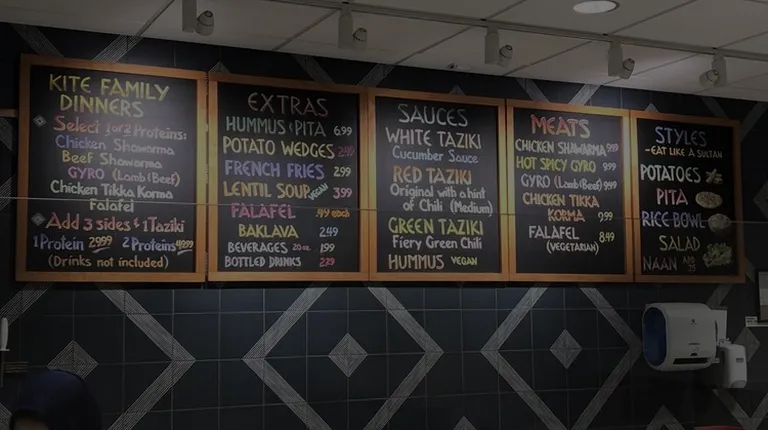 KITE FAMILY
DINNERS
Select 1 or 2 Proteins:
Chicken Shawarma
Beef Shawarma
GYRO (Lamb & Beef)
Chicken Tikka Korma
Falafel
Add 3 sides & 1 Taziki
1 Protein 29.99 2 Proteins
(Drinks not included)
EXTRAS
HUMMUS & PITA 6.99
POTATO WEDGES
FRENCH FRIES 2.99
LENTIL SOUP VEGAN 3.99
FALAFEL .49 each
BAKLAVA 2.49
BEVERAGES 20 oz. 1.99
BOTTLED DRINKS
SAUCES
WHITE TAZIKI
Cucumber Sauce
RED TAZIKI
Original with a hint
of Chili (Medium)
GREEN TAZIKI
Fiery Green Chili
HUMMUS VEGAN
MEATS
CHICKEN SHAWARMA 9.99
HOT SPICY GYRO 9.99
GYRO (Lamb & Beef) 9.99
CHICKEN TIKKA
KORMA 9.99
FALAFEL 8.49
(VEGETARIAN)
STYLES
-EAT LIKE A SULTAN
POTATOES
PITA
RICE BOWL
SALAD
NAAN